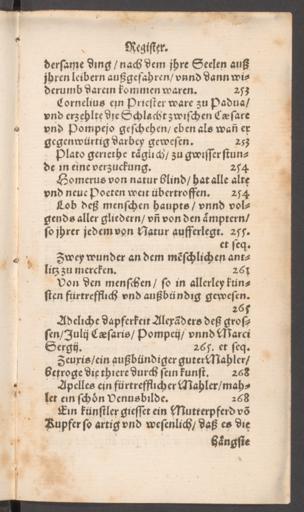 Register.
dersame ding / nach dem jhre Seelen auß
jhren leibern außgefahren / vnnd dann wi-
derumb darein kommen waren. 253
Cornelius ein Priester ware zu Padua /
vnd erzehlte die Schlacht zwischen Cæsare
vnd Pompejo geschehen / eben als wañ er
gegenwürtig darbey gewesen. 253
Plato geriethe täglich / zu gwisser stun-
de in eine verzuckung. 254
Homerus von natur blind / hat alle alte
vnd neue Poeten weit übertroffen. 254
Lob deß menschen haupts / vnnd vol-
gends aller gliedern / vñ von den ämptern /
so jhrer jedem von Natur aufferlegt. 255.
et seq.
Zwey wunder an dem mẽschlichen ant-
litz zu mercken. 263
Von den menschen / so in allerley kün-
sten fürtrefflich vnd außbündig gewesen.
265
Adeliche dapferkeit Alexãders deß gros-
sen / Julij Cæsaris / Pompeij / vnnd Marci
Sergij. 265. et seq.
Zeuxis / ein außbündiger guter Mahler /
betroge die thiere durch sein kunst. 268
Apelles ein fürtrefflicher Mahler / mah-
let ein schön Venusbilde. 268
Ein künstler giesset ein Mutterpferd võ
Kupfer so artig vnd wesenlich / daß es die
hängste